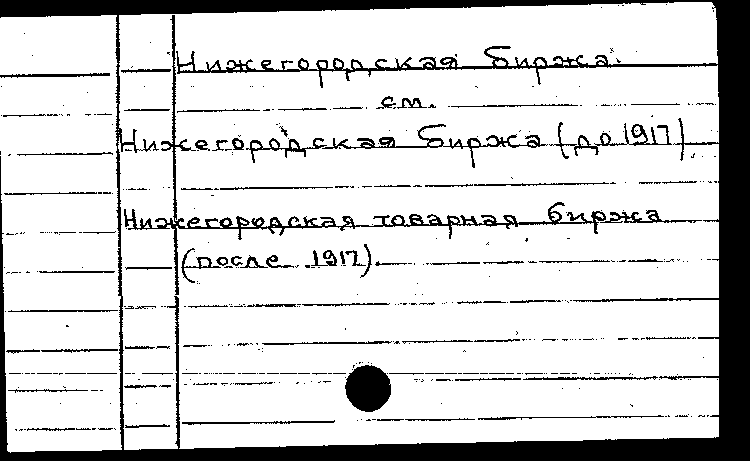 Нижегородская биржа.
см.
Нижегородская биржа (до 1917).
Нижегородская товарная биржа
(после 1917).